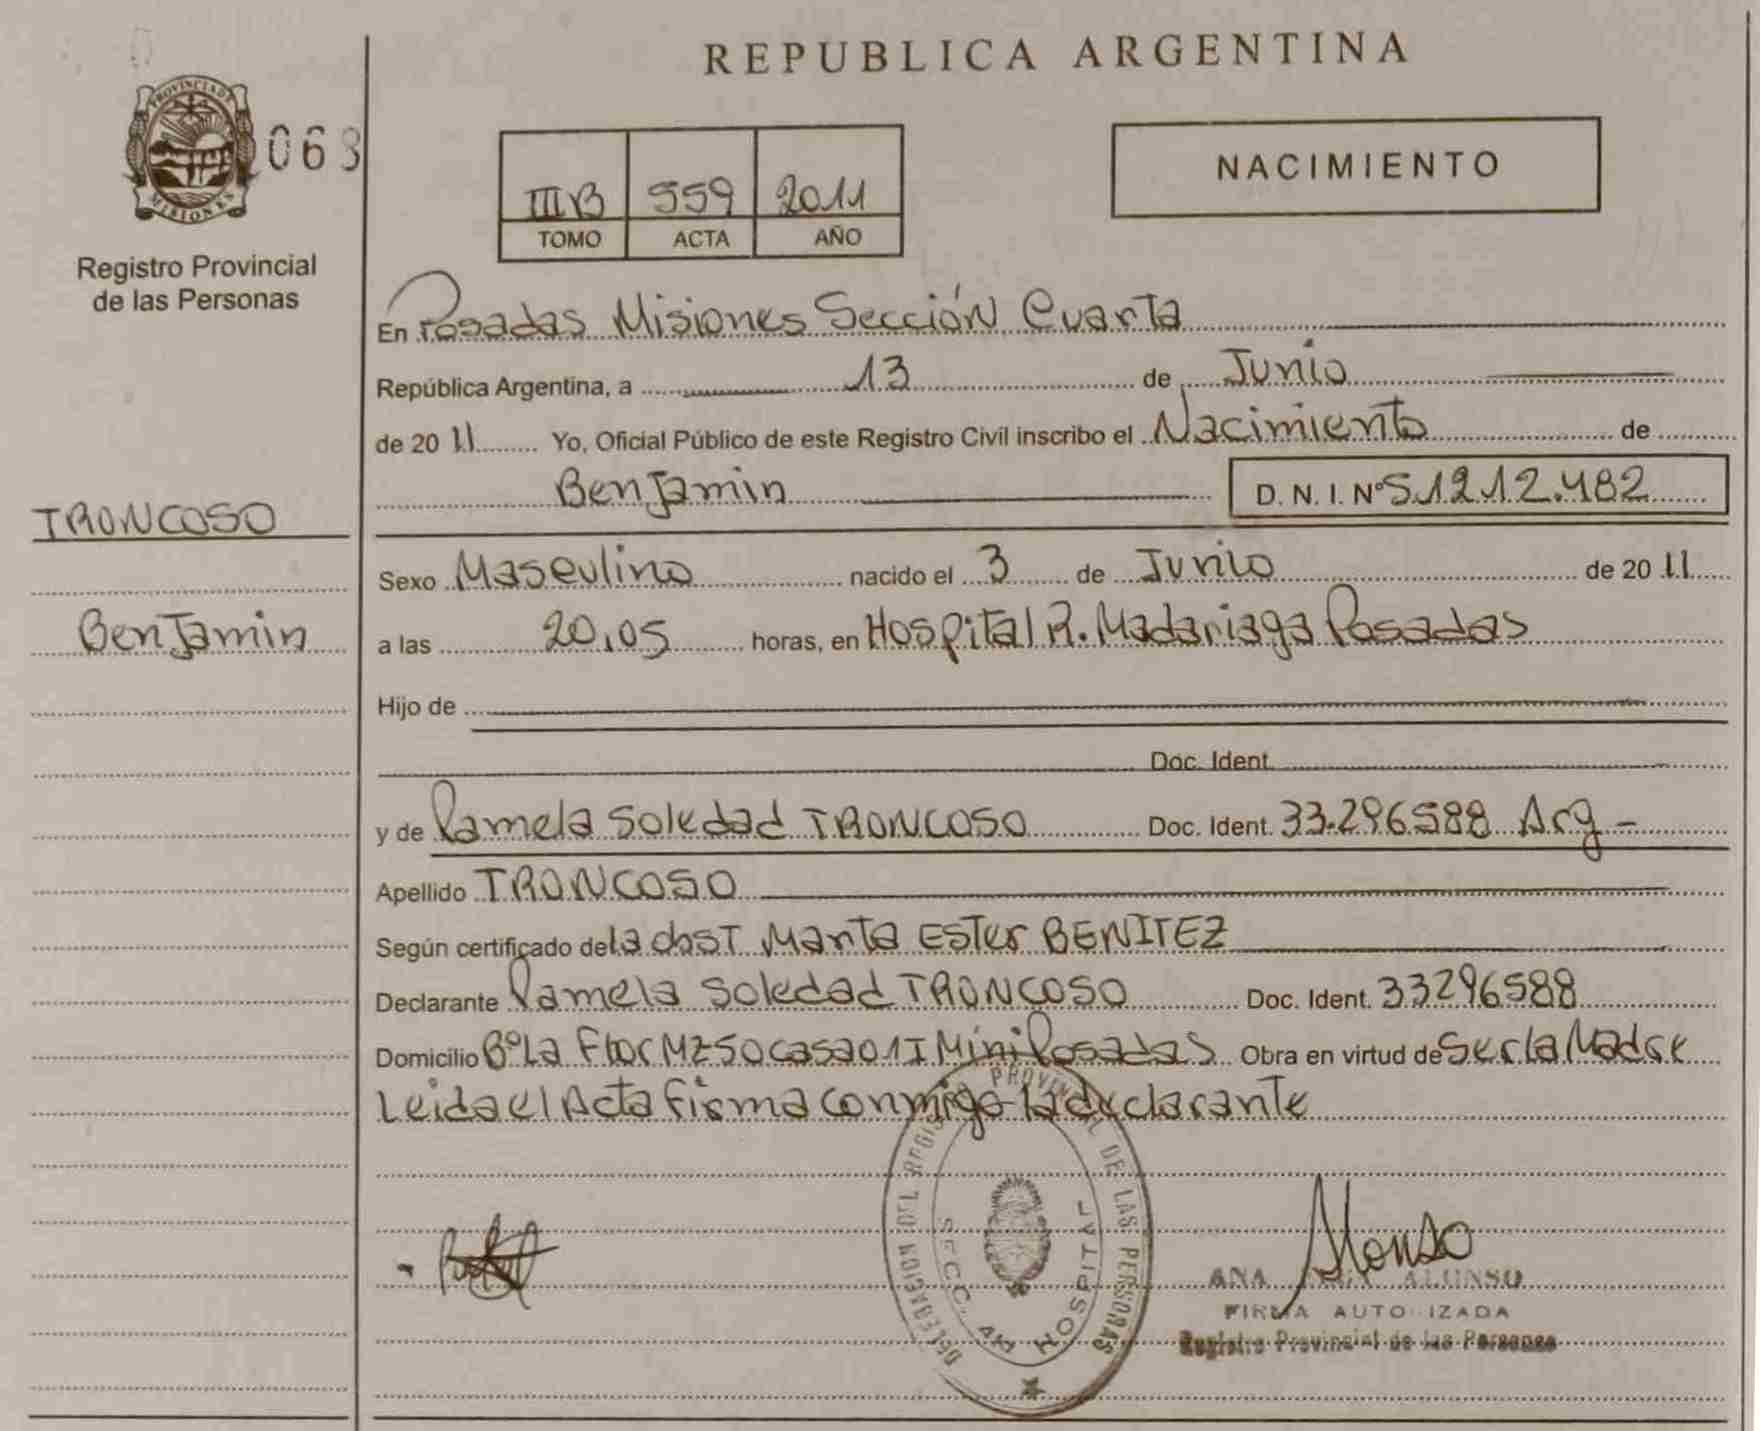 REPUBLICA ARGENTINA
PROVINCIA DE
MISIONES
063
Registro Provincial
de las Personas
IIIB 559 2011
TOMO ACTA AÑO
NACIMIENTO
En Posadas Misiones Sección Cuarta
República Argentina, a 13 de Junio
de 2011 Yo, Oficial Público de este Registro Civil inscribo el Nacimiento de
Benjamin D.N.I. Nº 51212.482
TRONCOSO
Benjamin
Sexo Masculino nacido el 3 de Junio de 2011
a las 20,05 horas, en Hospital R. Madariaga Posadas
Hijo de
Doc. Ident.
y de Pamela Soledad TRONCOSO Doc. Ident. 33.296588 Arg -
Apellido TRONCOSO
Según certificado de la obst Marta Ester BENITEZ
Declarante Pamela Soledad TRONCOSO Doc. Ident. 33296588
Domicilio Bº La Flor MZ50 casa 01 I Mini Posadas Obra en virtud de Ser la Madre
Leida el Acta firma conmigo la declarante
DELEGACION DEL REGISTRO PROVINCIAL DE LAS PERSONAS
SECC. 4ª HOSPITAL
Alonso
ANA ALONSO
FIRMA AUTORIZADA
Registro Provincial de las Personas